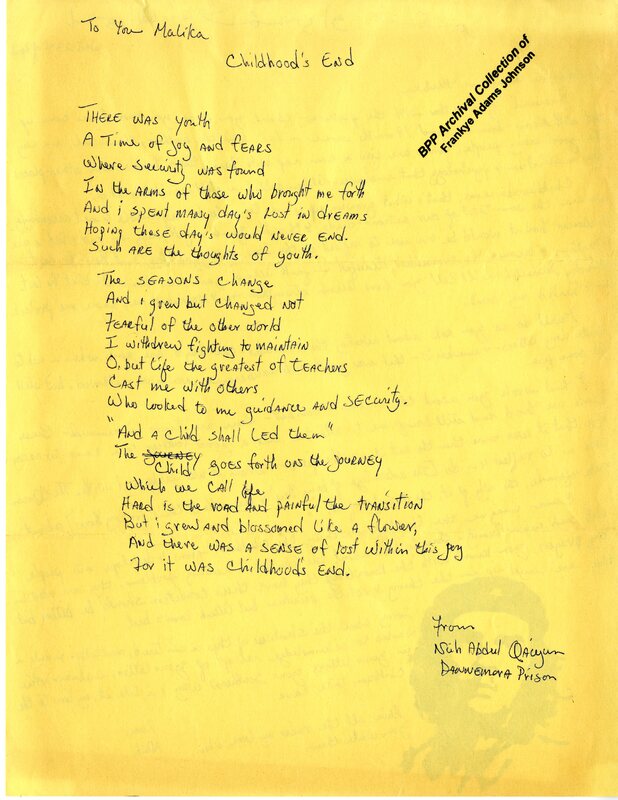 To You Malika
Childhood's End
BPP Archival Collection of
Frankye Adams Johnson
There was youth
A Time of joy and fears
Where security was found
In the arms of those who brought me forth
And i spent many day's lost in dreams
Hoping those day's would never end.
Such are the thoughts of youth.
The seasons change
And i grew but changed not
Fearful of the other world
I withdrew fighting to maintain
O, but life the greatest of teachers
Cast me with others
Who looked to me guidance and security.
"And a child shall led them"
The journey
Child goes forth on the journey
Which we call life
Hard is the road and painful the transition
But i grew and blossomed like a flower,
And there was a sense of lost within this joy
For it was childhood's end.
From
Nuh Abdul Qaiyum
Dannemora Prison